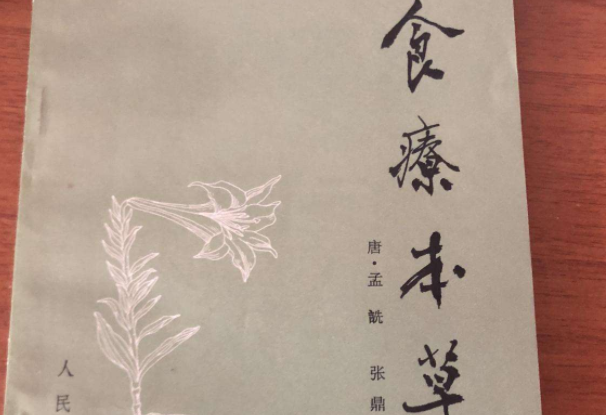 食療本草
唐·孟詵 张鼎
人民